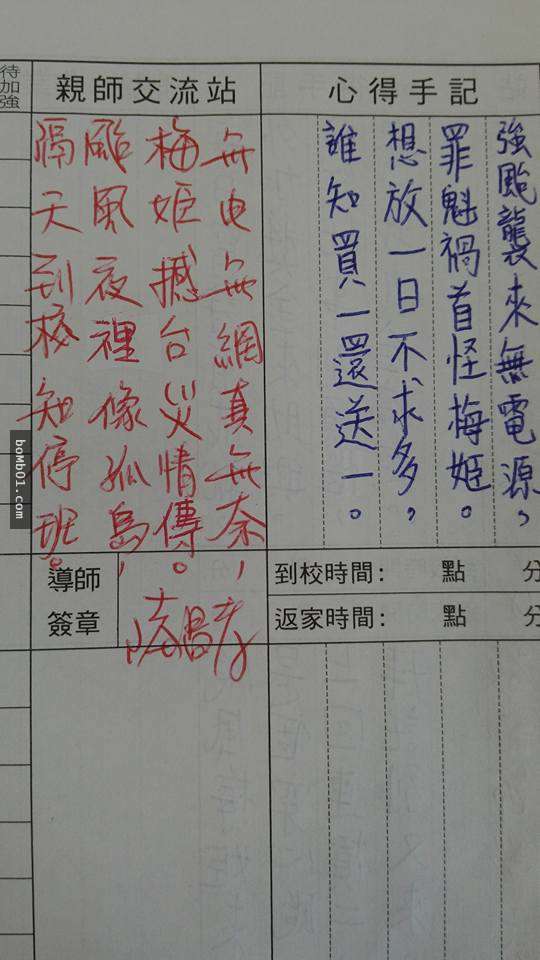 待加強
親師交流站
心得手記
強颱襲來無電源，
罪魁禍首怪梅姬。
想放一日不求多，
誰知買一還送一。
无电无網真无奈，
梅姬撼台災情傳。
颱風夜裡像孤島，
隔天到校知停班。
導師簽章
到校時間： 點 分
返家時間： 點 分
boMb01.com